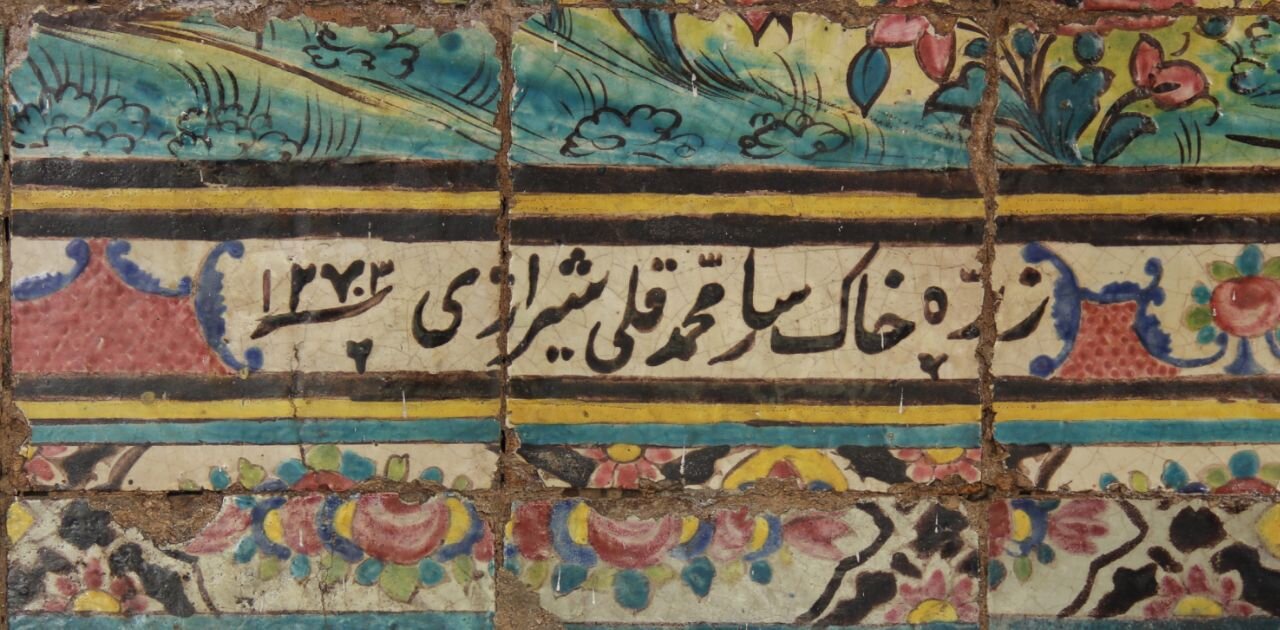 زرّه خاک سار محمّد قلی شیرازی ۱۲۷۰۳